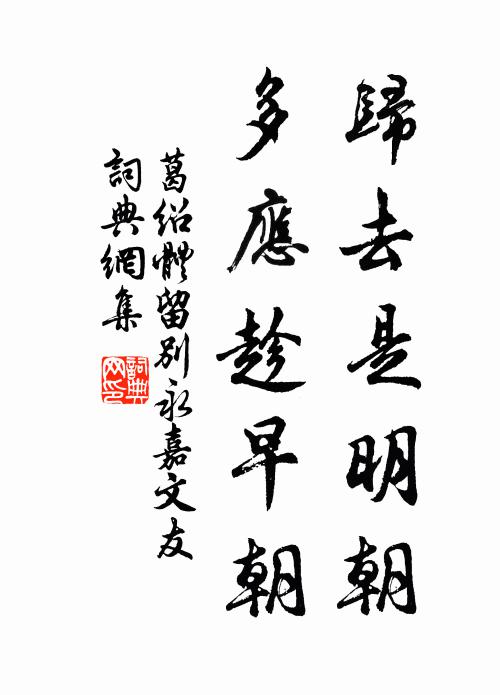 歸去是明朝
多應趁早朝
葛紹體留別永嘉文友
詞典網集
詞典網印